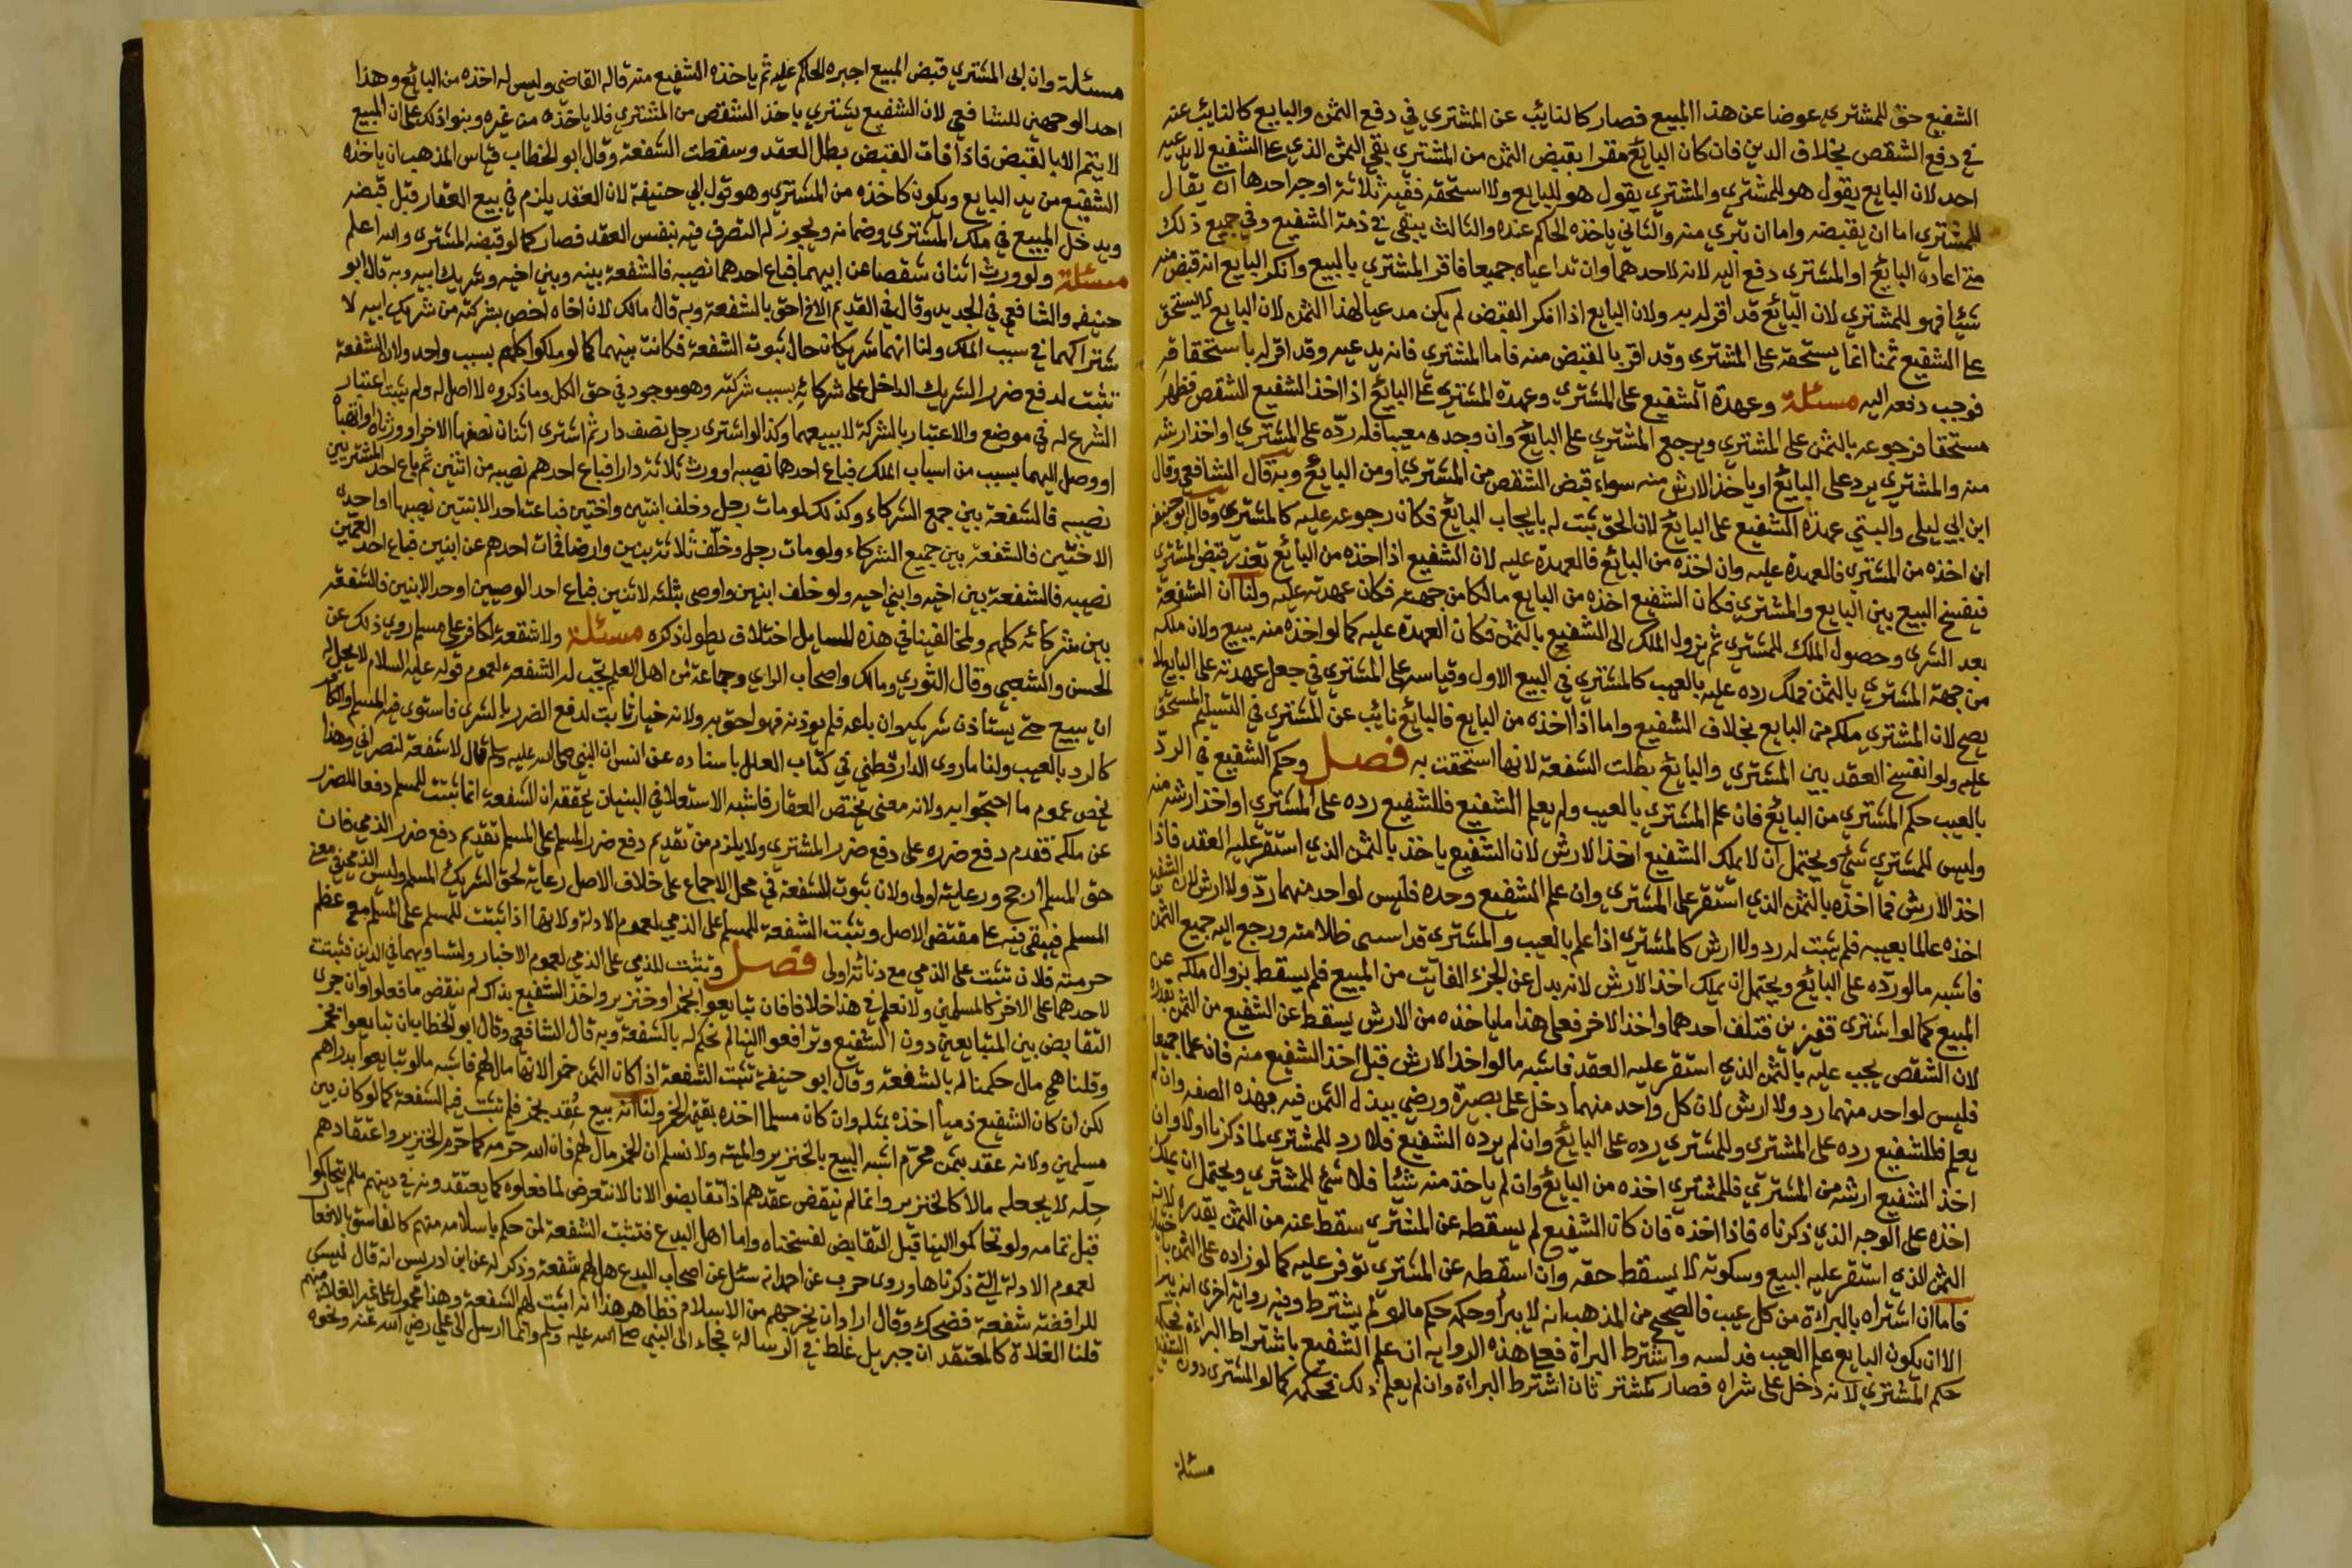 الشفيع حق للمشتري عوضا عن هذا المبيع فصار كالنايب عن المشتري في دفع الثمن والبايع كالنايب عنه
في دفع الشقص بخلاف الدين فان كان البايع مقرا بقبض الثمن من المشتري بقي الثمن الذي على الشفيع لا يدعيه
احد لان البايع يقول هو للمشتري والمشتري يقول هو للبايع ولا استحقه ففيه ثلاثة اوجه احدها ان يقال
للمشتري اما ان يقبضه واما ان تبري منه والثاني ياخذه الحاكم عنده والثالث يبقى في ذمة الشفيع وفي جميع ذلك
متى ادعاه البايع او المشتري دفع اليه لانه لاحدهما وان تداعياه جميعا فاقر المشتري بالمبيع وانكر البايع انه قبض منه
شيئا فهو للمشتري لان البايع قد اقر له به ولان البايع اذا انكر القبض لم يكن مدعيا لهذا الثمن لان البايع لا يستحق
على الشفيع ثمنا انما يستحقه على المشتري وقد اقر بالقبض منه فاما المشتري فانه يدعيه وقد اقر له باستحقاقه
فوجب دفعه اليه مسئلة وعهدة الشفيع على المشتري وعهدة المشتري على البايع اذا اخذ الشفيع الشقص فظهر
مستحقا فرجوعه بالثمن على المشتري ويرجع المشتري على البايع وان وجده معيبا فله رده على المشتري او اخذ ارشه
منه والمشتري يرد على البايع او ياخذ الارش منه سواء قبض الشقص من المشتري او من البايع وبه قال الشافعي وقال
ابن ابي ليلى والبتي عهدة الشفيع على البايع لان الحق ثبت له بايجاب البايع فكان رجوعه عليه كالمشتري وقال ابو حنيفه
ان اخذه من المشتري فالعهدة عليه وان اخذه من البايع فالعهدة عليه لان الشفيع اذا اخذه من البايع تعذر قبض المشتري
فيفسخ البيع بين البايع والمشتري فكان الشفيع اخذه من البايع مالكا من جهته فكان عهدته عليه ولنا ان الشفعة
بعد الشرى وحصول الملك للمشتري ثم يزول الملك الى الشفيع بالثمن فكان العهدة عليه كما لو اخذه منه ببيع ولانه ملكه
من جهة المشتري بالثمن فملك رده عليه بالعيب كالمشتري في البيع الاول وقياسه على المشتري في جعل عهدته على البايع لا
يصح لان المشتري ملكه من البايع بخلاف الشفيع واما اذا اخذه من البايع فالبايع نائب عن المشتري في التسليم المستحق
عليه ولو انفسخ العقد بين المشتري والبايع بطلت الشفعة لانها استحقت به فصل وحكم الشفيع في الرد
بالعيب حكم المشتري من البايع فان علم المشتري بالعيب ولم يعلم الشفيع فللشفيع رده على المشتري او اخذ ارشه منه
وليس للمشتري شئ ويحتمل ان لا يملك الشفيع اخذ الارش لان الشفيع ياخذ بالثمن الذي استقر عليه العقد فاذا
اخذ الارش فما اخذه بالثمن الذي استقر على المشتري وان علم الشفيع وحده فليس لواحد منهما رد ولا ارش لان الشفيع
اخذه عالما بعيبه فلم يثبت له رد ولا ارش كالمشتري اذا علم بالعيب والمشتري قد استدرك ظلامته ورجع اليه جميع الثمن
فاشبه ما لو رده على البايع ويحتمل ان يملك اخذ الارش لانه بدل عن الجزء الفايت من المبيع فلم يسقط بزوال ملكه عن
المبيع كما لو اشترى قفيزين فتلف احدهما واخذ الاخر فعلى هذا ما ياخذه من الارش يسقط عن الشفيع من الثمن بقدره
لان الشقص يجب عليه بالثمن الذي استقر عليه العقد فاشبه ما لو اخذ الارش قبل اخذ الشفيع منه فان علما جميعا
فليس لواحد منهما رد ولا ارش لان كل واحد منهما دخل على بصيرة ورضي ببذل الثمن فيه بهذه الصفه وان لم
يعلم فللشفيع رده على المشتري وللمشتري رده على البايع وان لم يرده الشفيع فلا رد للمشتري لما ذكرنا اولا وان
اخذ الشفيع ارشه من المشتري فللمشتري اخذه من البايع وان لم ياخذ منه شيئا فلا شئ للمشتري ويحتمل ان يملك
اخذه على الوجه الذي ذكرناه فاذا اخذه فان كان الشفيع لم يسقطه عن المشتري سقط عنه من الثمن بقدره لانه
الثمن الذي استقر عليه البيع وسكوته لا يسقط حقه وان اسقطه عن المشتري توفر عليه كما لو زاده على الثمن باختياره
فاما ان اشتراه بالبراءة من كل عيب فالصحيح من المذهب انه لا يبرأ وحكمه حكم ما لو لم يشترط وفيه رواية اخرى انه يبرا
الا ان يكون البايع علم العيب فدلسه واشترط البراة فعلى هذه الرواية ان علم الشفيع باشتراط البراءة فحكمه
حكم المشتري لانه دخل على شراه فصار كمشتر ثان اشترط البراءة وان لم يعلم ذلك فحكمه كما لو المشتري دون الشفيع
مسئلة
مسئلة وان ابى المشتري قبض المبيع اجبره الحاكم عليه ثم ياخذه الشفيع منه قاله القاضي وليس له اخذه من البايع وهذا
احد الوجهين للشافعي لان الشفيع يشتري ياخذ الشقص من المشتري فلا ياخذه من غيره وبنوا ذلك على ان المبيع
لا يتم الا بالقبض فاذا فات القبض بطل العقد وسقطت الشفعة وقال ابو الخطاب قياس المذهب ان ياخذه
الشفيع من يد البايع ويكون كاخذه من المشتري وهو قول ابي حنيفة لان العقد يلزم في بيع العقار قبل قبضه
ويدخل المبيع في ملك المشتري وضمانه ويجوز له التصرف فيه بنفس العقد فصار كما لو قبضه المشتري والله اعلم
مسئلة ولو ورث اثنان شقصا عن ابيهما فباع احدهما نصيبه فالشفعة بينه وبين اخيه وشريك ابيه وبه قال ابو
حنيفه والشافعي في الجديد وقال في القديم الاخ احق بالشفعة وبه قال مالك لان اخاه اخص بشركته من شريك ابيه لا
شتراكهما في سبب الملك ولنا انهما شريكان حال ثبوت الشفعة فكانت بينهما كما لو ملكوا كلهم بسبب واحد ولان الشفعة
تثبت لدفع ضرر الشريك الداخل على شركائه بسبب شركته وهو موجود في حق الكل وما ذكروه لا اصل له ولم يثبت اعتبار
الشرع له في موضع والاعتبار بالشركة لا بسببها وكذا لو اشترى رجل نصف دار ثم اشترى اثنان نصفها الاخر او ورثاه او اتهباه
او وصل اليهما بسبب من اسباب الملك فباع احدهما نصيبه او ورث ثلاثة دارا فباع احدهم نصيبه من اثنين ثم باع احد المشتريين
نصيبه فالشفعة بين جميع الشركاء وكذلك لو مات رجل وخلف ابنتين واختين فباعت احد الابنتين نصيبها او احدى
الاختين فالشفعة بين جميع الشركاء ولو مات رجل وخلف ثلاثة بنين وارضا فمات احدهم عن ابنين فباع احد العمين
نصيبه فالشفعة بين اخيه وابني اخيه ولو خلف ابنين واوصى بثلثه لاثنين فباع احد الوصيين او احد الابنين فالشفعة
بين شركائه كلهم ولمخالفينا في هذه المسايل اختلاف يطول ذكره مسئلة ولا شفعة لكافر على مسلم روي ذلك عن
الحسن والشعبي وقال الثوري ومالك واصحاب الراي وجماعة من اهل العلم تجب له الشفعة لعموم قوله عليه السلام لا يحل له
ان يبيع حتى يستاذن شريكه وان باعه فلم يوذنه فهو احق به ولانه خيار ثابت لدفع الضرر بالشرى فاستوى فيه المسلم والكافر
كالرد بالعيب ولنا ما روى الدارقطني في كتاب العلل باسناده عن انس ان النبي صلى الله عليه وسلم قال لا شفعة لنصراني وهذا
يخص عموم ما احتجوا به ولانه معنى يختص العقار فاشبه الاستعلا في البنيان يحققه ان الشفعة انما تثبت للمسلم دفعا للضرر
عن ملكه فقدم دفع ضرره على دفع ضرر المشتري ولا يلزم من تقديم دفع ضرر المسلم على المسلم تقديم دفع ضرر الذمي فان
حق المسلم ارجح ورعايته اولى ولان ثبوت الشفعة في محل الاجماع على خلاف الاصل رعاية لحق الشريك المسلم وليس الذمي في معنى
المسلم فيبقى فيه على مقتضى الاصل وتثبت الشفعة للمسلم على الذمي لعموم الادلة ولانها اذا ثبتت للمسلم على المسلم مع عظم
حرمته فلان تثبت على الذمي مع دنائته اولى فصل وتثبت للذمي على الذمي لعموم الاخبار ولتساويهما في الدين فتثبت
لاحدهما على الاخر كالمسلمين ولا نعلم في هذا خلافا فان تبايعوا بخمر او خنزير واخذ الشفيع بذلك لم ننقض ما فعلوا وان جرى
التقابض بين المتبايعين دون الشفيع وترافعوا الينا لم نحكم له بالشفعة وبه قال الشافعي وقال ابو الخطاب ان تبايعوا بخمر
وقلنا هي مال حكمنا له بالشفعة وقال ابو حنيفة تثبت الشفعة اذا كان الثمن خمرا لانها مال لهم فاشبه ما لو تبايعوا بدراهم
لكن ان كان الشفيع ذميا اخذه بمثله وان كان مسلما اخذه بقيمة الخمر ولنا انه بيع عقد بخمر فلم تثبت فيه الشفعة كما لو كان بين
مسلمين ولانه عقد بثمن محرم اشبه البيع بالخنزير والميته ولا نسلم ان الخمر مال لهم فان الله حرمه كما حرم الخنزير واعتقادهم
حله لا يجعله مالا كالخنزير وانما لم ينقض عقدهم اذا تقابضوا لانا لا نتعرض لما فعلوه كما يعتقدونه في دينهم ما لم يتحاكموا
قبل تمامه ولو تحاكموا الينا قبل التقابض لفسخناه واما اهل البدع فتثبت الشفعة لمن حكم باسلامه منهم كالفاسق بالافعال
لعموم الادلة التي ذكرناها وروى حرب عن احمد انه سئل عن اصحاب البدع هل لهم شفعة وذكر له عن ابن ادريس انه قال ليس
للرافضة شفعة فضحك وقال اراد ان يخرجهم من الاسلام فظاهر هذا انه اثبت لهم الشفعة وهذا محمول على غير الغلاة منهم
قلنا الغلاة كالمعتقد ان جبريل غلط في الرسالة فجاء الى النبي صلى الله عليه وسلم وانما ارسل الى علي رضي الله عنه ونحوه